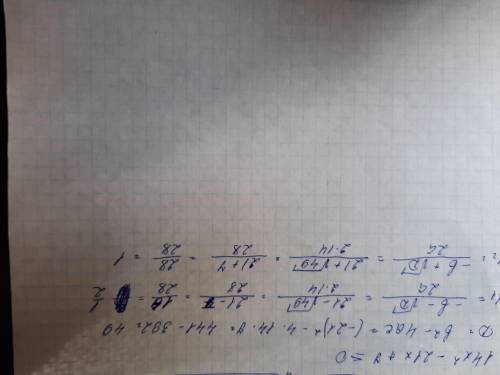 14x² - 21x + 7 = 0
D = b² - 4ac = (-21)² - 4 · 14 · 7 = 441 - 392 = 49
= (-b - √D) / 2a = (21 - √49) / 2·14 = (21 - 7) / 28 = / 28 = 1/2
= (-b + √D) / 2a = (21 + √49) / 2·14 = (21 + 7) / 28 = 28/28 = 1